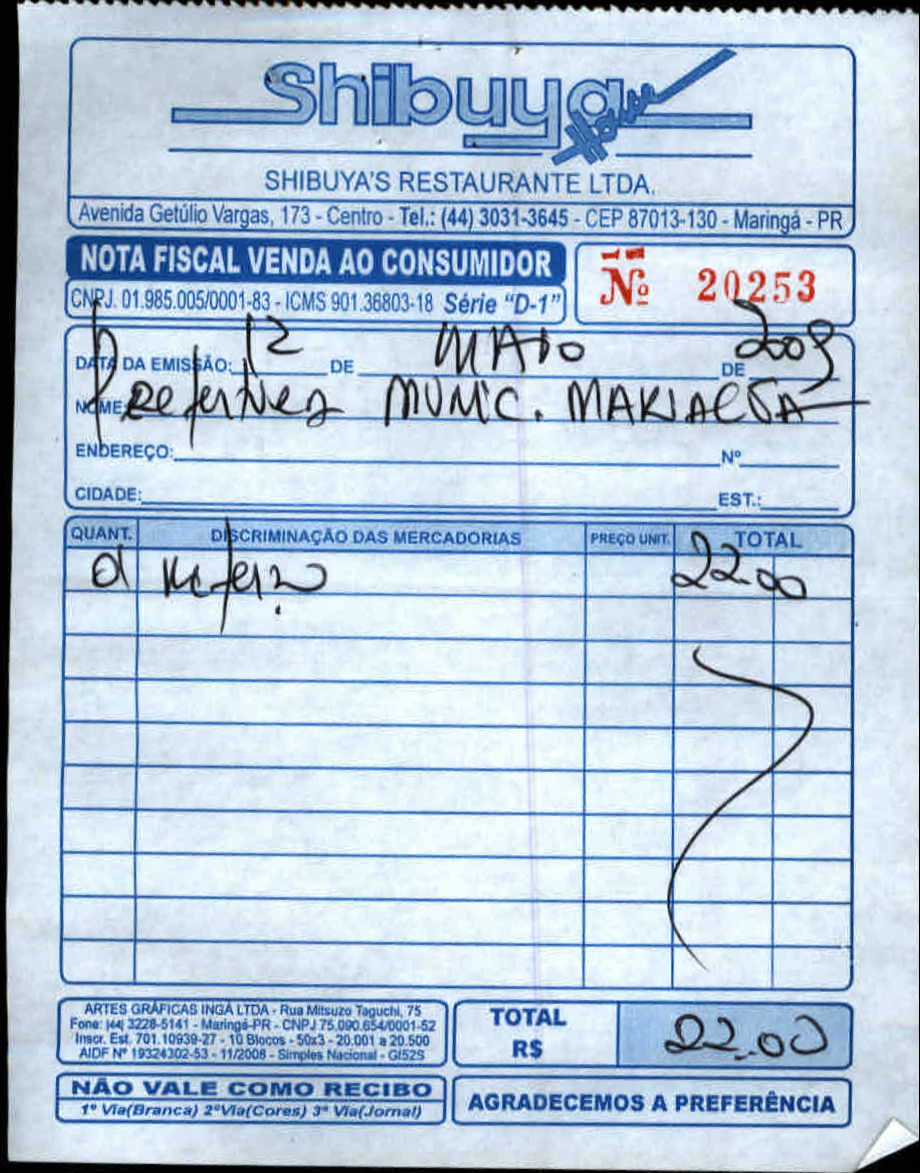 Shibuya House
SHIBUYA'S RESTAURANTE LTDA.
Avenida Getúlio Vargas, 173 - Centro - Tel.: (44) 3031-3645 - CEP 87013-130 - Maringá - PR
NOTA FISCAL VENDA AO CONSUMIDOR
Nº 20253
CNPJ. 01.985.005/0001-83 - ICMS 901.36803-18 Série "D-1"
DATA DA EMISSÃO: 12 DE MAIO DE 2009
NOME: MUNIC. MARIALVA
ENDEREÇO: Nº
CIDADE: EST.:
QUANT. DISCRIMINAÇÃO DAS MERCADORIAS PREÇO UNIT. TOTAL
22.00
ARTES GRÁFICAS INGÁ LTDA - Rua Mitsuzo Taguchi, 75
Fone: (44) 3228-5141 - Maringá-PR - CNPJ 75.090.654/0001-52
Inscr. Est. 701.10939-27 - 10 Blocos - 50x3 - 20.001 a 20.500
AIDF Nº 19324302-53 - 11/2008 - Simples Nacional - GI52S
TOTAL
R$ 22.00
NÃO VALE COMO RECIBO
1ª Via(Branca) 2ª Via(Cores) 3ª Via(Jornal)
AGRADECEMOS A PREFERÊNCIA